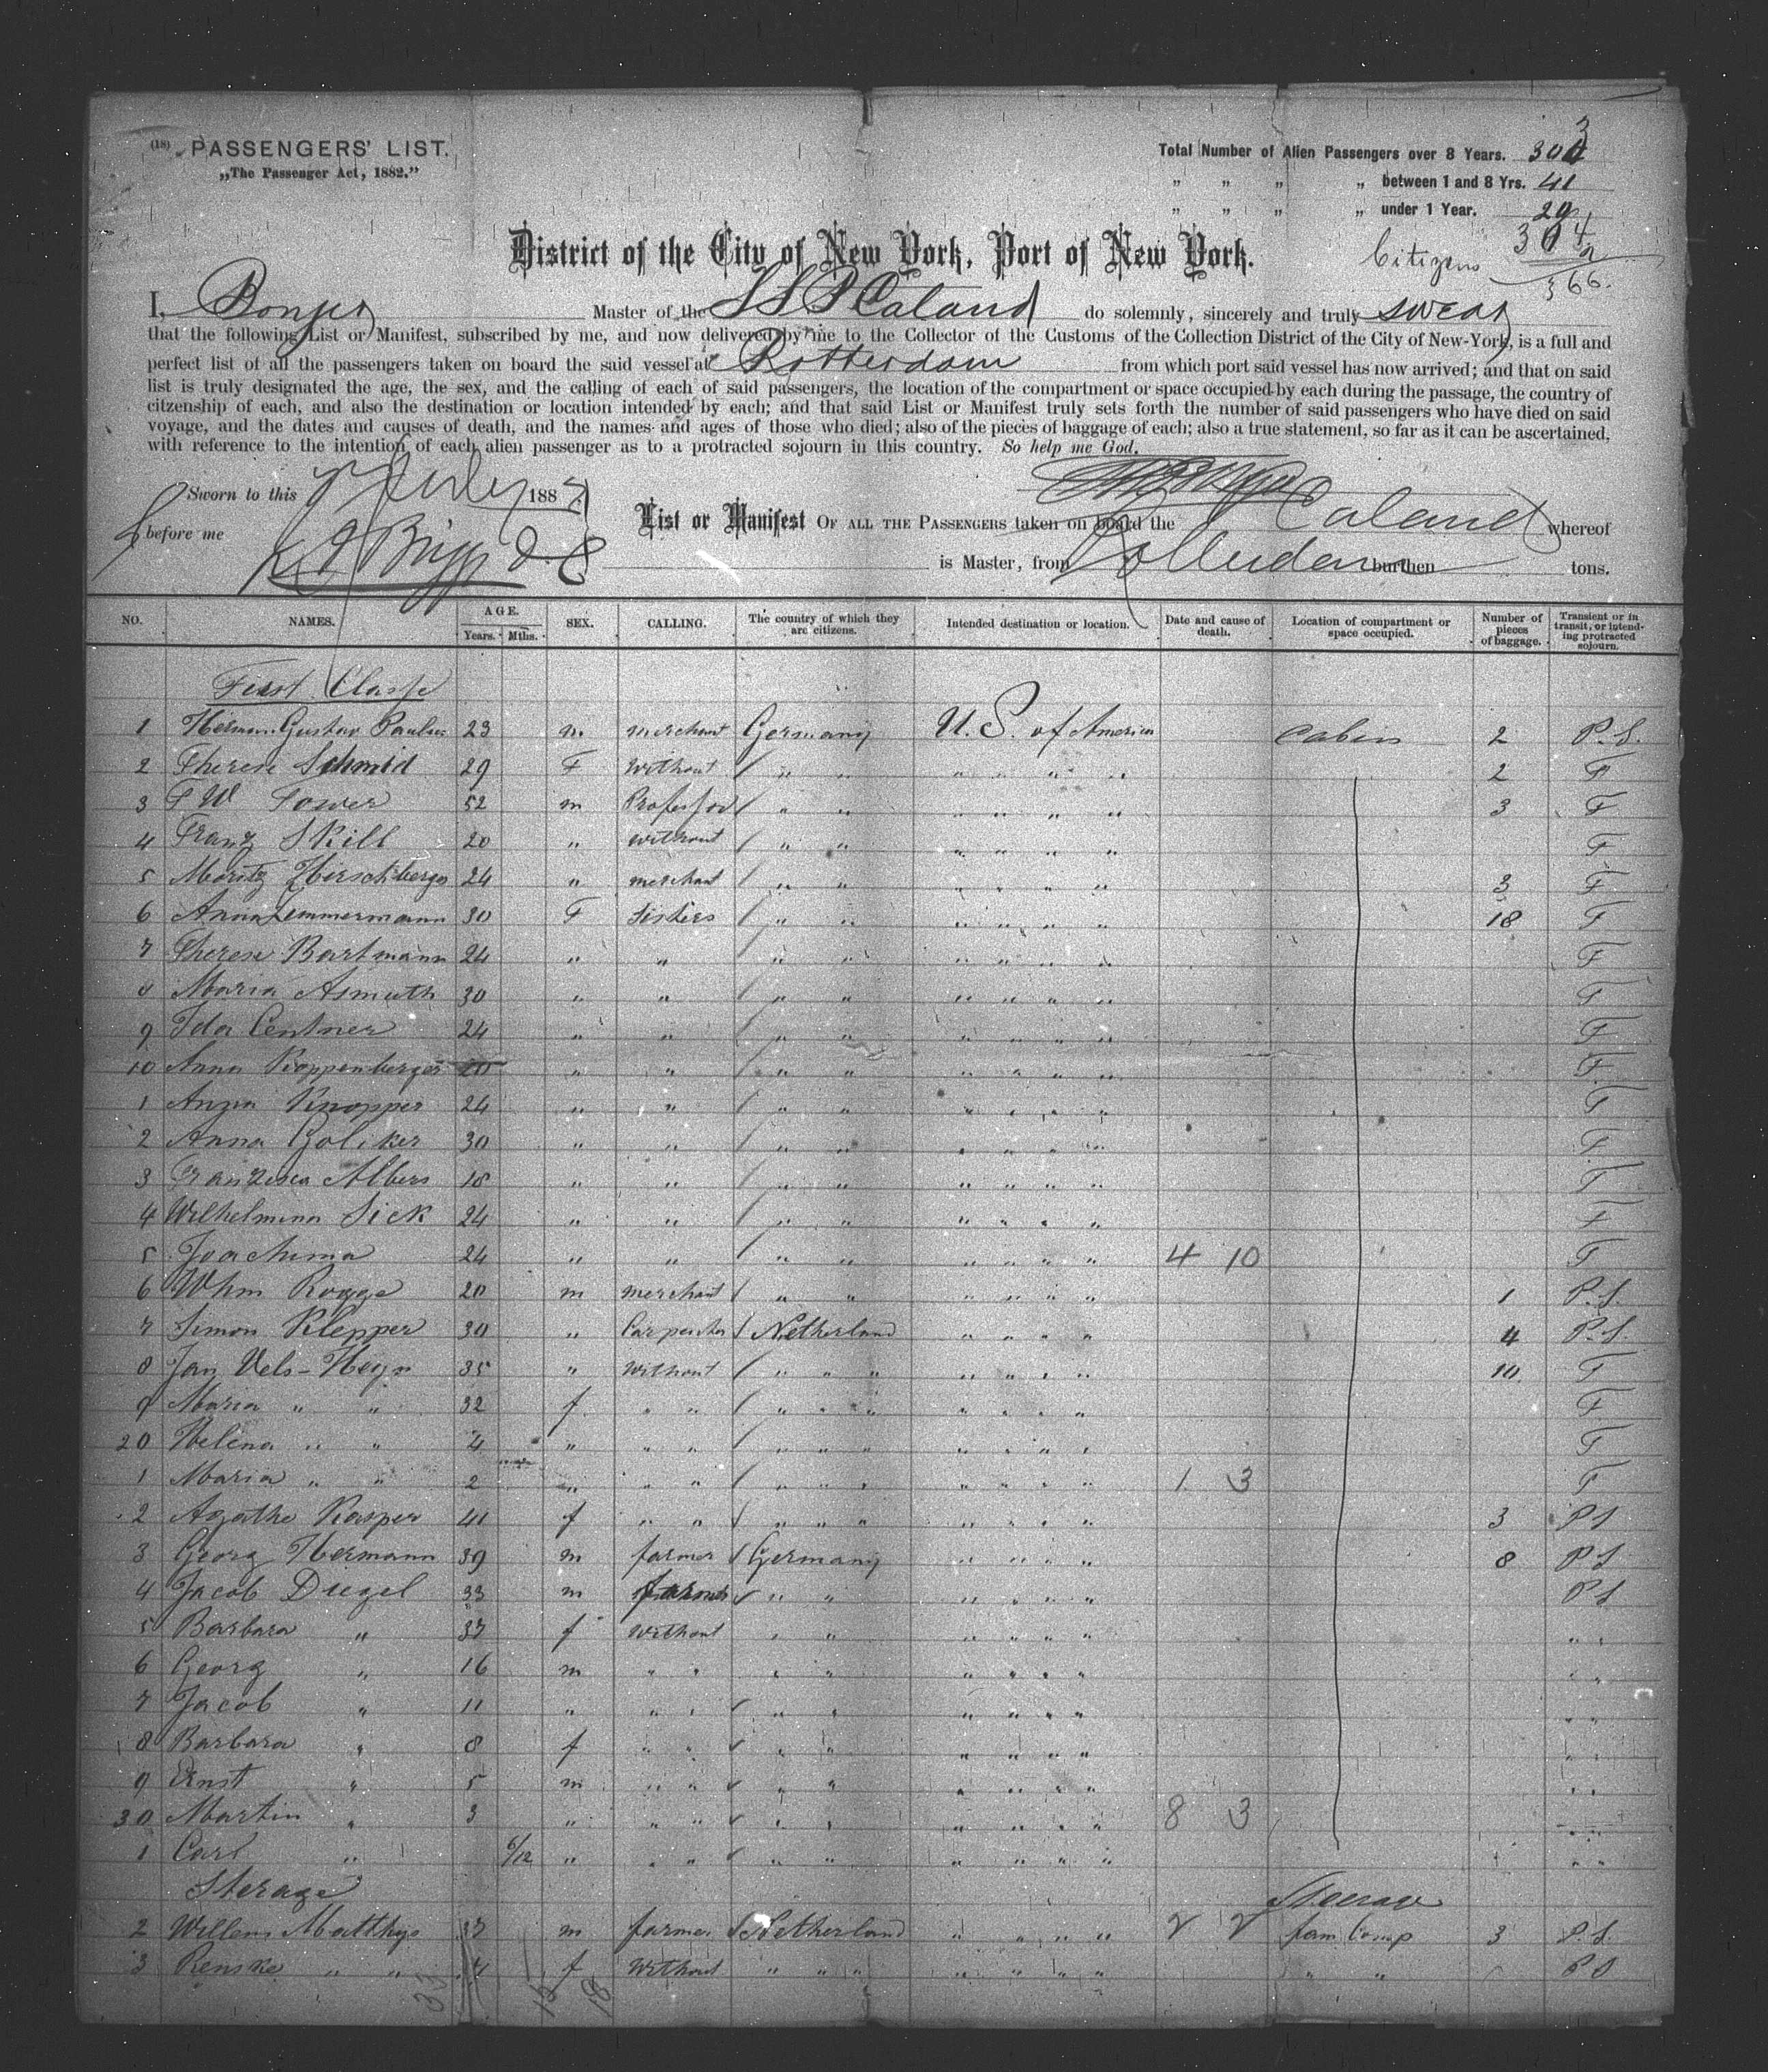 (18) PASSENGERS' LIST.
„The Passenger Act, 1882."
Total Number of Alien Passengers over 8 Years. 303
„ „ „ „ between 1 and 8 Yrs. 41
„ „ „ „ under 1 Year. 20
364
Citizens 2
366.
District of the City of New York, Port of New York.
I, Bonjer Master of the SS P Caland do solemnly, sincerely and truly swear
that the following List or Manifest, subscribed by me, and now delivered by me to the Collector of the Customs of the Collection District of the City of New-York, is a full and
perfect list of all the passengers taken on board the said vessel at Rotterdam from which port said vessel has now arrived; and that on said
list is truly designated the age, the sex, and the calling of each of said passengers, the location of the compartment or space occupied by each during the passage, the country of
citzenship of each, and also the destination or location intended by each; and that said List or Manifest truly sets forth the number of said passengers who have died on said
voyage, and the dates and causes of death, and the names and ages of those who died; also of the pieces of baggage of each; also a true statement, so far as it can be ascertained,
with reference to the intention of each alien passenger as to a protracted sojourn in this country. So help me God.
Sworn to this July 188
before me Briggs D. C
List or Manifest OF ALL THE PASSENGERS taken on board the Caland whereof
is Master, from Rotterdam burthen tons.
NO. NAMES. AGE. Years. Mths. SEX. CALLING. The country of which they are citizens. Intended destination or location. Date and cause of death. Location of compartment or space occupied. Number of pieces of baggage. Transient or in transit, or intending protracted sojourn.
First Classe
1 Herman Gustav Paulus 23 m merchant Germany U. S. of America Cabin 2 P. S.
2 Therese Schmid 29 F Without / „ „ „ „ „ „ 2 F
3 F W Tower 52 m Professor / „ „ „ „ „ „ 3 F
4 Franz Skill 20 „ Without / „ „ „ „ „ „ F
5 Moritz Hirschberger 24 „ merchant / „ „ „ „ „ „ 3 F
6 Anna Zimmermann 30 F Sisters / „ „ „ „ „ „ 18 F
7 Therese Bartmann 24 „ „ / „ „ „ „ „ „ F
8 Maria Asmuth 30 „ „ / „ „ „ „ „ „ F
9 Ida Centner 24 „ „ / „ „ „ „ „ „ F
10 Anna Koppenberger 20 „ „ / „ „ „ „ „ „ F
1 Anna Knopper 24 „ „ / „ „ „ „ „ „ F
2 Anna Goliker 30 „ „ / „ „ „ „ „ „ F
3 Franzisca Albers 18 „ „ / „ „ „ „ „ „ F
4 Wilhelmina Sick 24 „ „ / „ „ „ „ „ „ F
5 Joachima 24 „ „ / „ „ „ „ „ „ 4 10 F
6 Whm Rogge 20 m merchant / „ „ „ „ „ „ 1 P. S.
7 Simon Klepper 30 „ Carpenter / Netherland „ „ „ „ 4 P. S.
8 Jan Vels-Heyn 35 „ Without / „ „ „ „ „ „ „ 10 F
9 Maria „ „ 32 f „ „ / „ „ „ „ „ „ „ F
20 Helena „ „ 4 „ „ „ / „ „ „ „ „ „ „ F
1 Maria „ „ 2 „ „ „ / „ „ „ „ „ „ „ 1 3 F
2 Agathe Kasper 41 f „ „ / „ „ „ „ „ „ „ 3 P S
3 Georg Hermann 39 m farmer / Germany „ „ „ „ 8 P S
4 Jacob Diegel 33 m farmer ✓ „ „ „ „ „ „ P S
5 Barbara „ 37 f Without „ „ „ „ „ „ „ „
6 Georg „ 16 m „ „ „ „ „ „ „ „ „ „
7 Jacob „ 11 „ „ „ ✓ „ „ „ „ „ „ „ „
8 Barbara „ 8 f „ „ ✓ „ „ „ „ „ „ „ „
9 Ernst „ 5 m „ „ ✓ „ „ „ „ „ „ „ „
30 Martin „ 3 „ „ „ ✓ „ „ „ „ „ „ 8 3 „ „
1 Carl „ 6/12 „ „ „ ✓ „ „ „ „ „ „ „ „
Sterage Steerage
2 Willem Matthys 37 m farmer / Netherland „ „ „ „ 2 2 fam Comp 3 P. S.
3 Renske „ „ f Without „ „ „ „ „ „ „ „ „ P S
33 15 18